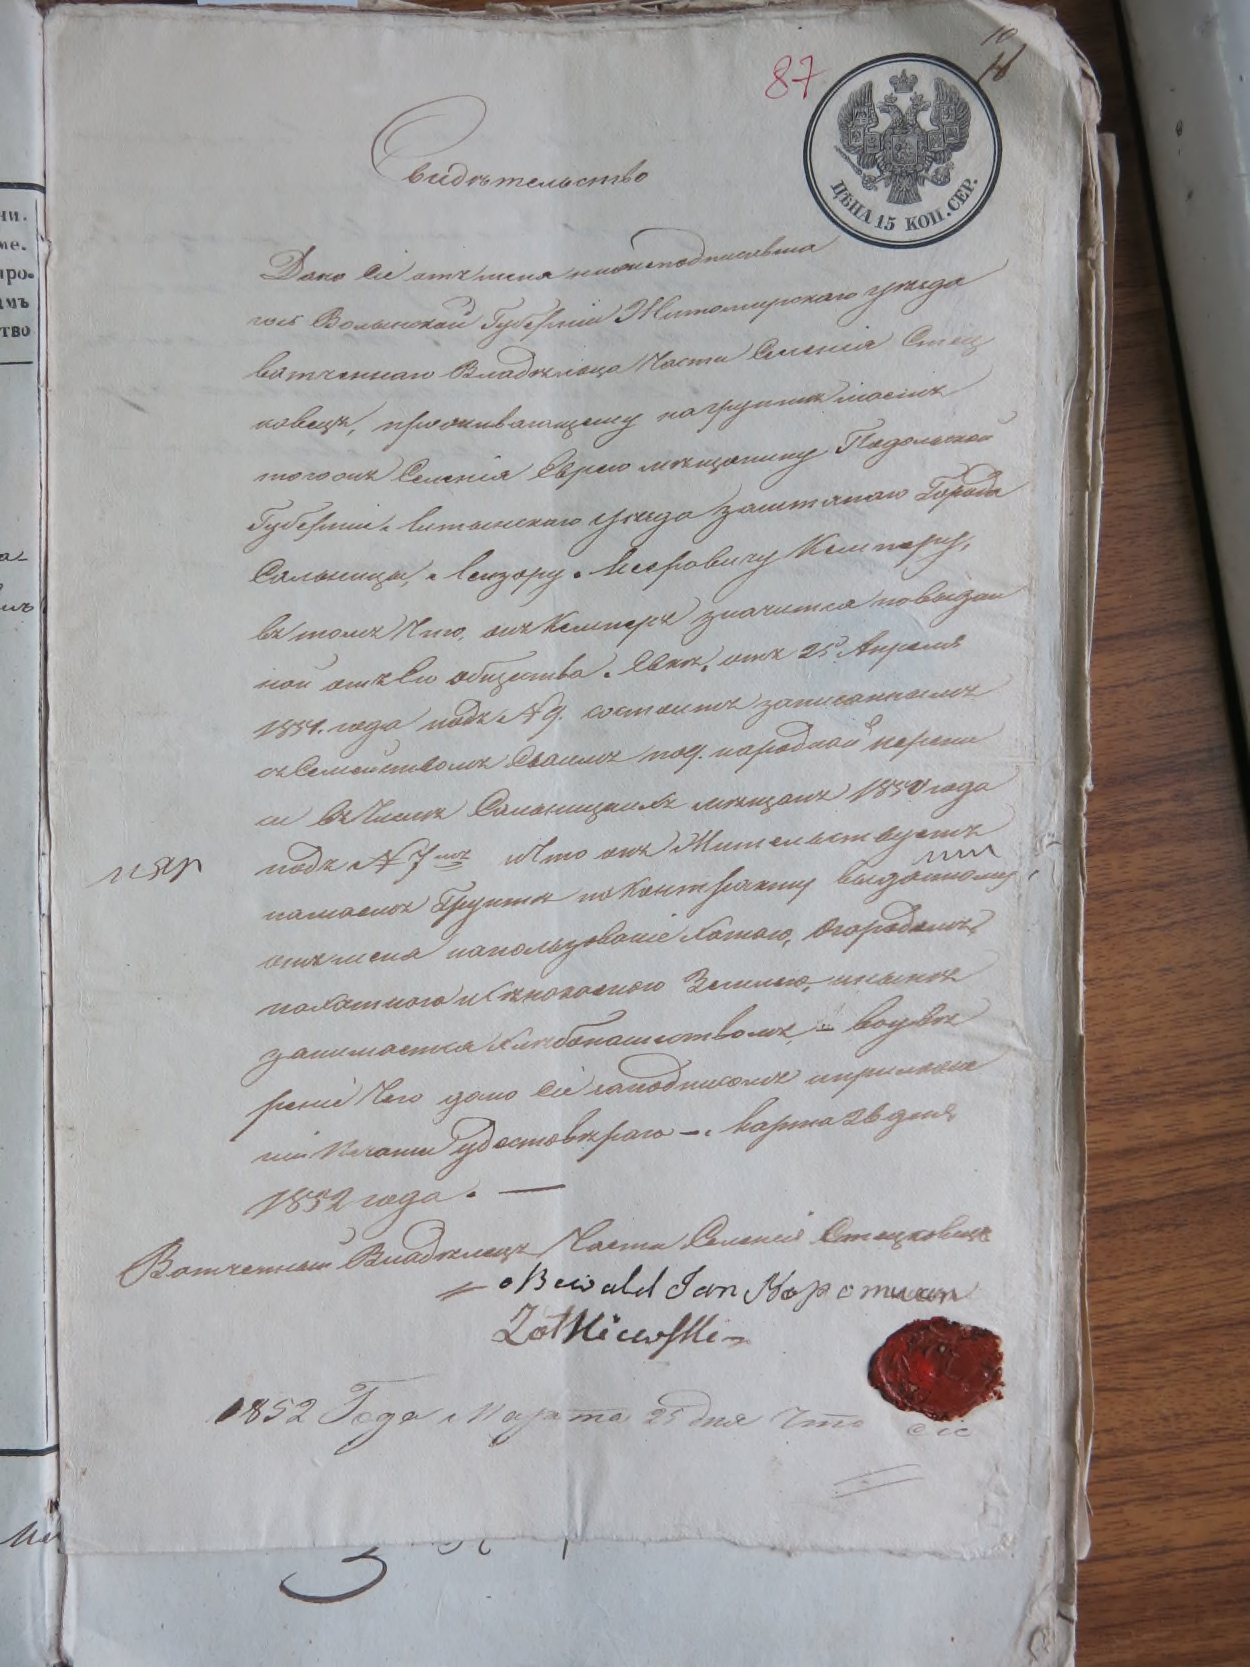 10
87
ЦѢНА 15 КОП. СЕР.
Свидѣтельство
Дано сіе отъ меня нижеподписавша
гось Волынской Губерніи Житомирскаго уѣзда
вотченнаго Владѣльца Части Селенія Стец
ковецъ, проживающему на грунтѣ моемъ
тогожъ Селенія Еврею мѣщанину Подольской
Губерніи Литынскаго уѣзда заштатнаго Города
Сальницы, Лейзору Мееровичу Кемперу,
въ томъ что, онъ Кемперъ значится по выдан
ной отъ Его общества Сказкѣ отъ 25 Апреля
1851 года подъ № 9. состоитъ записаннымъ
съ Семействомъ Своимъ по 9. народной перепи
си въ Числѣ Сальницкихъ мѣщанъ 1850 года
подъ № 7мъ Что онъ Жительствуетъ
на моемъ Грунтѣ по Контракту выданному
отъ меня на пользованіе хатою, Огородомъ,
пахатною и Сѣнокосною Землею, и нынѣ
занимается хлѣбопашествомъ, въ увѣ
реніе Чего дано сіе за подписомъ и приложе
ніи Печати Удостовѣряю — Марта 26 дня
1852 года. —
Вотченный Владѣлецъ Части Селенія Стецковецъ
Oswald Jan Nepomucen
Żołkiewski
1852 Года Марта 25 дня Что сіе
ни.
ме.
про.
амъ
тво